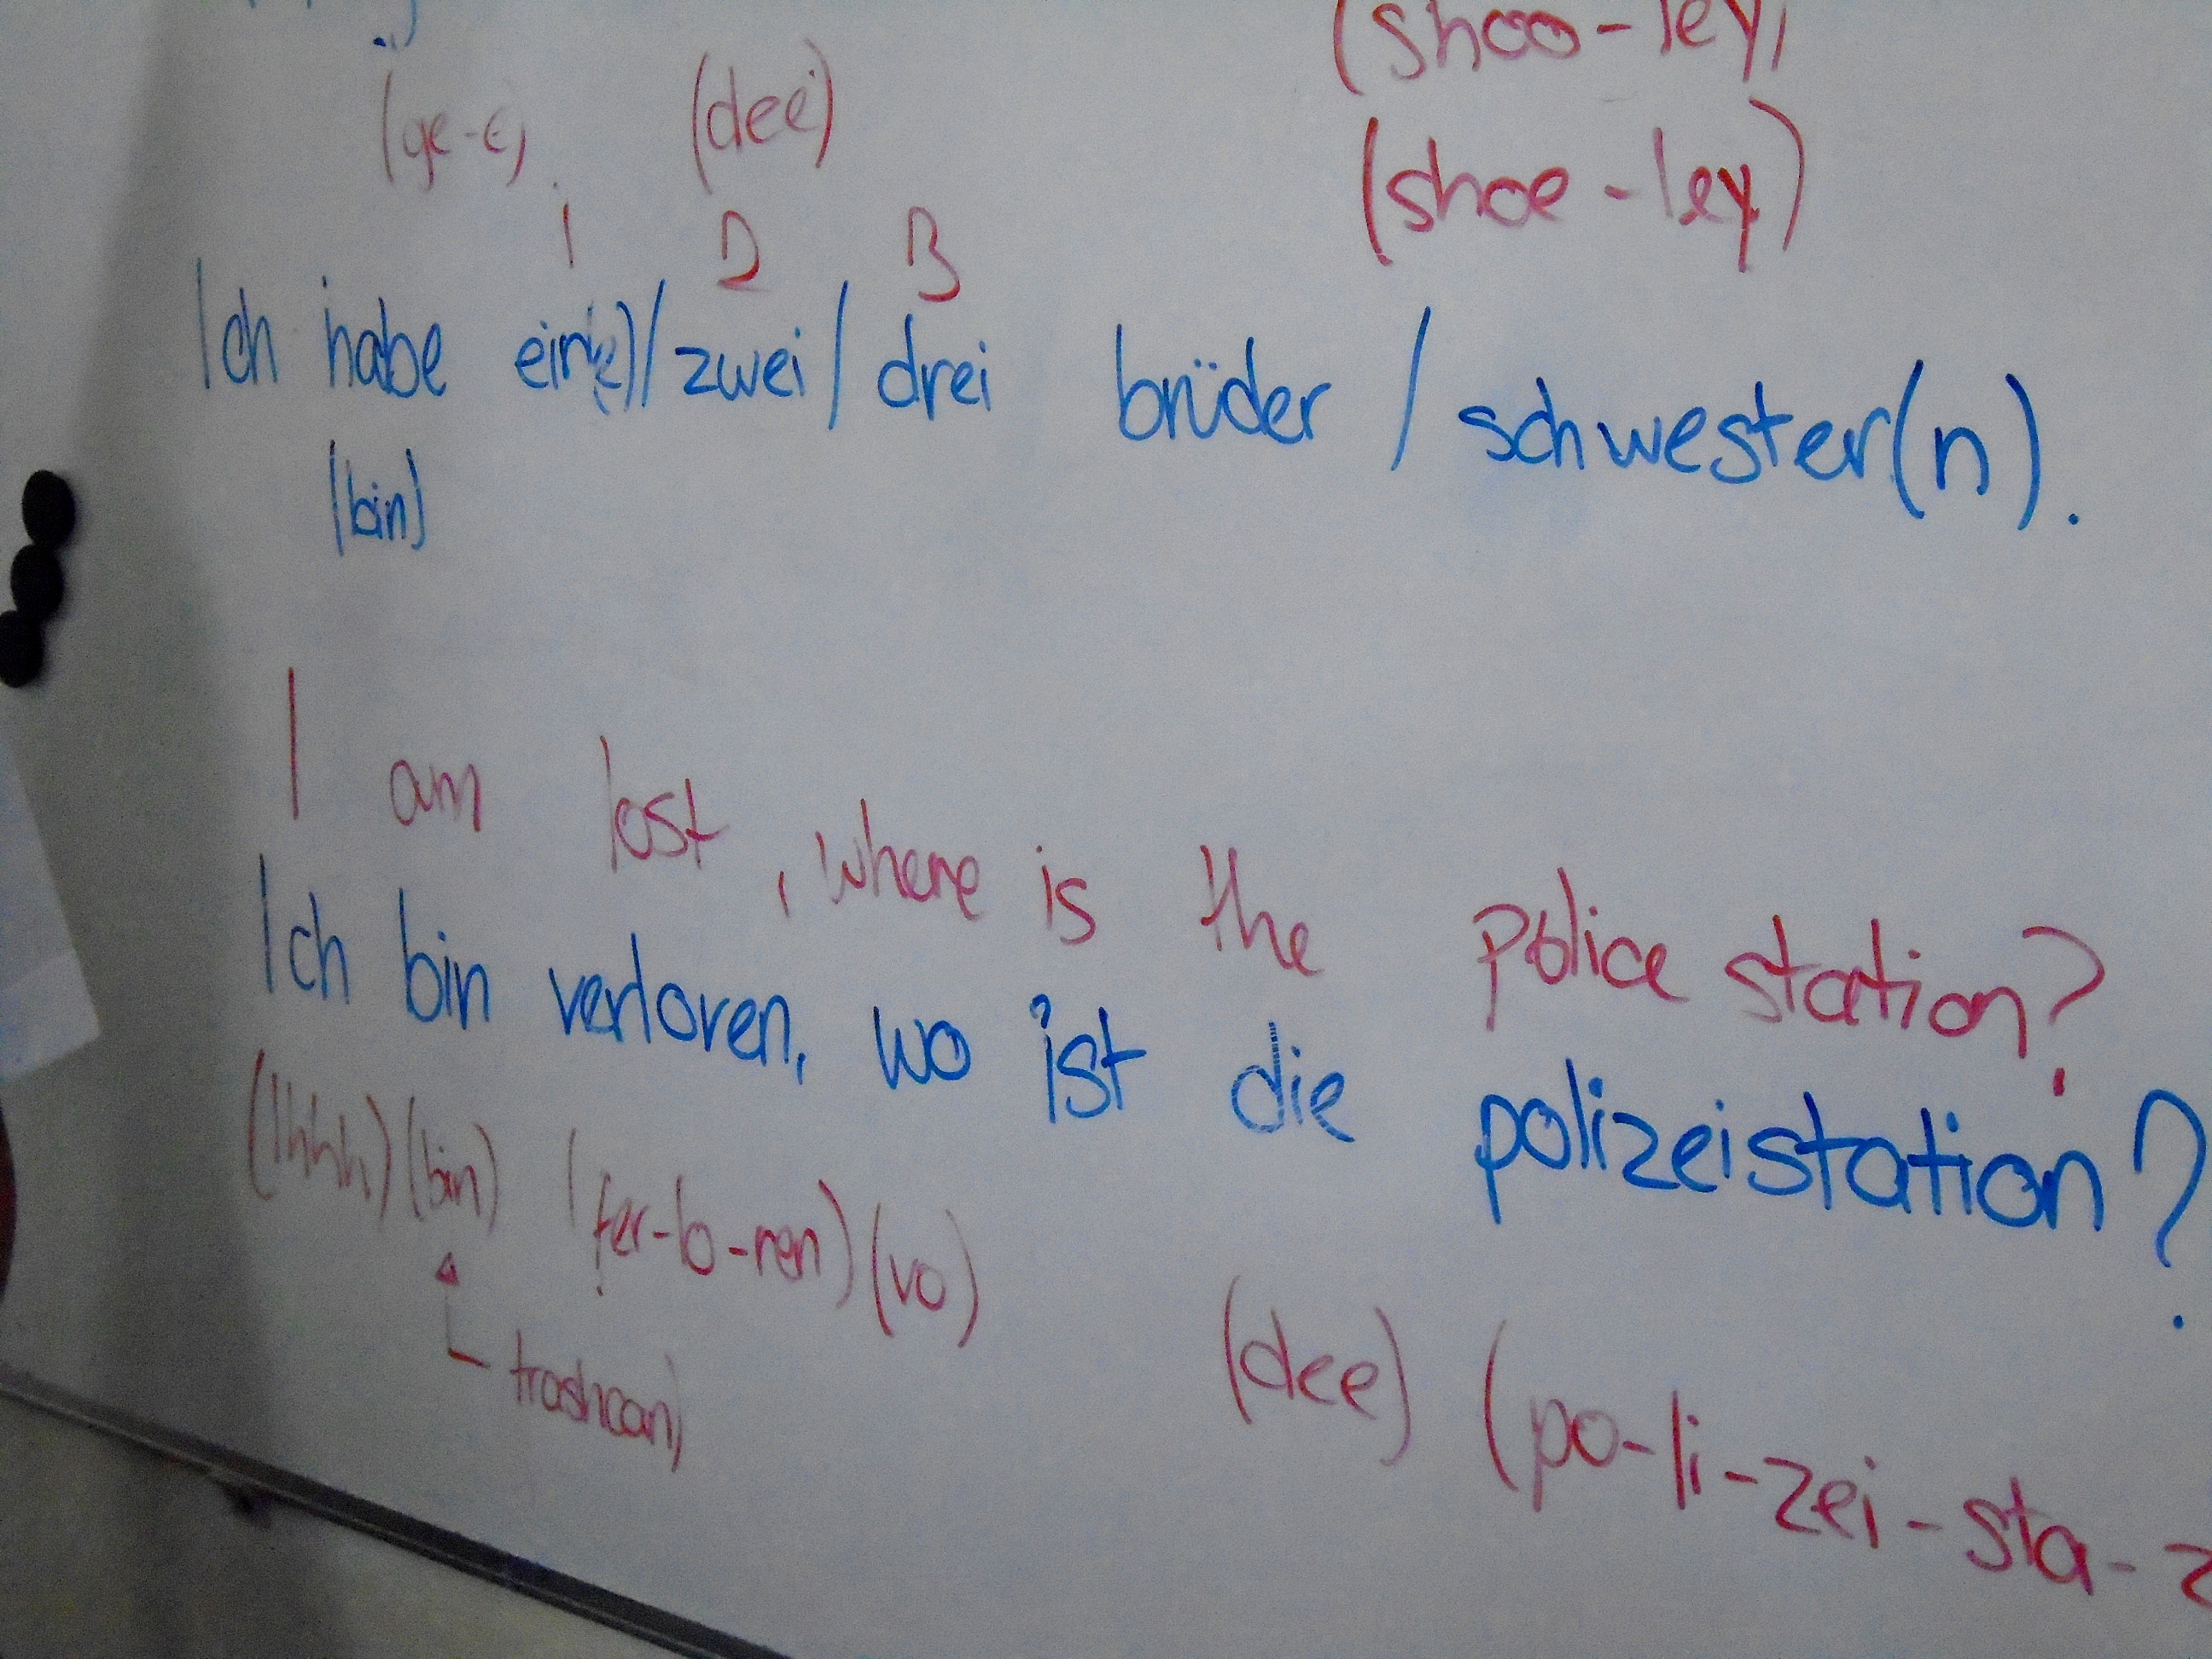 (shoo-ley)
(dee)
(shoe-ley)
1 2 3
Ich habe ein(e)/zwei/drei brüder/schwester(n).
(bin)
I am lost, where is the police station?
Ich bin verloren, wo ist die polizeistation?
(Ihhh) (bin) (fer-lo-ren) (vo)
(dee) (po-li-zei-sta-z
trashcan)